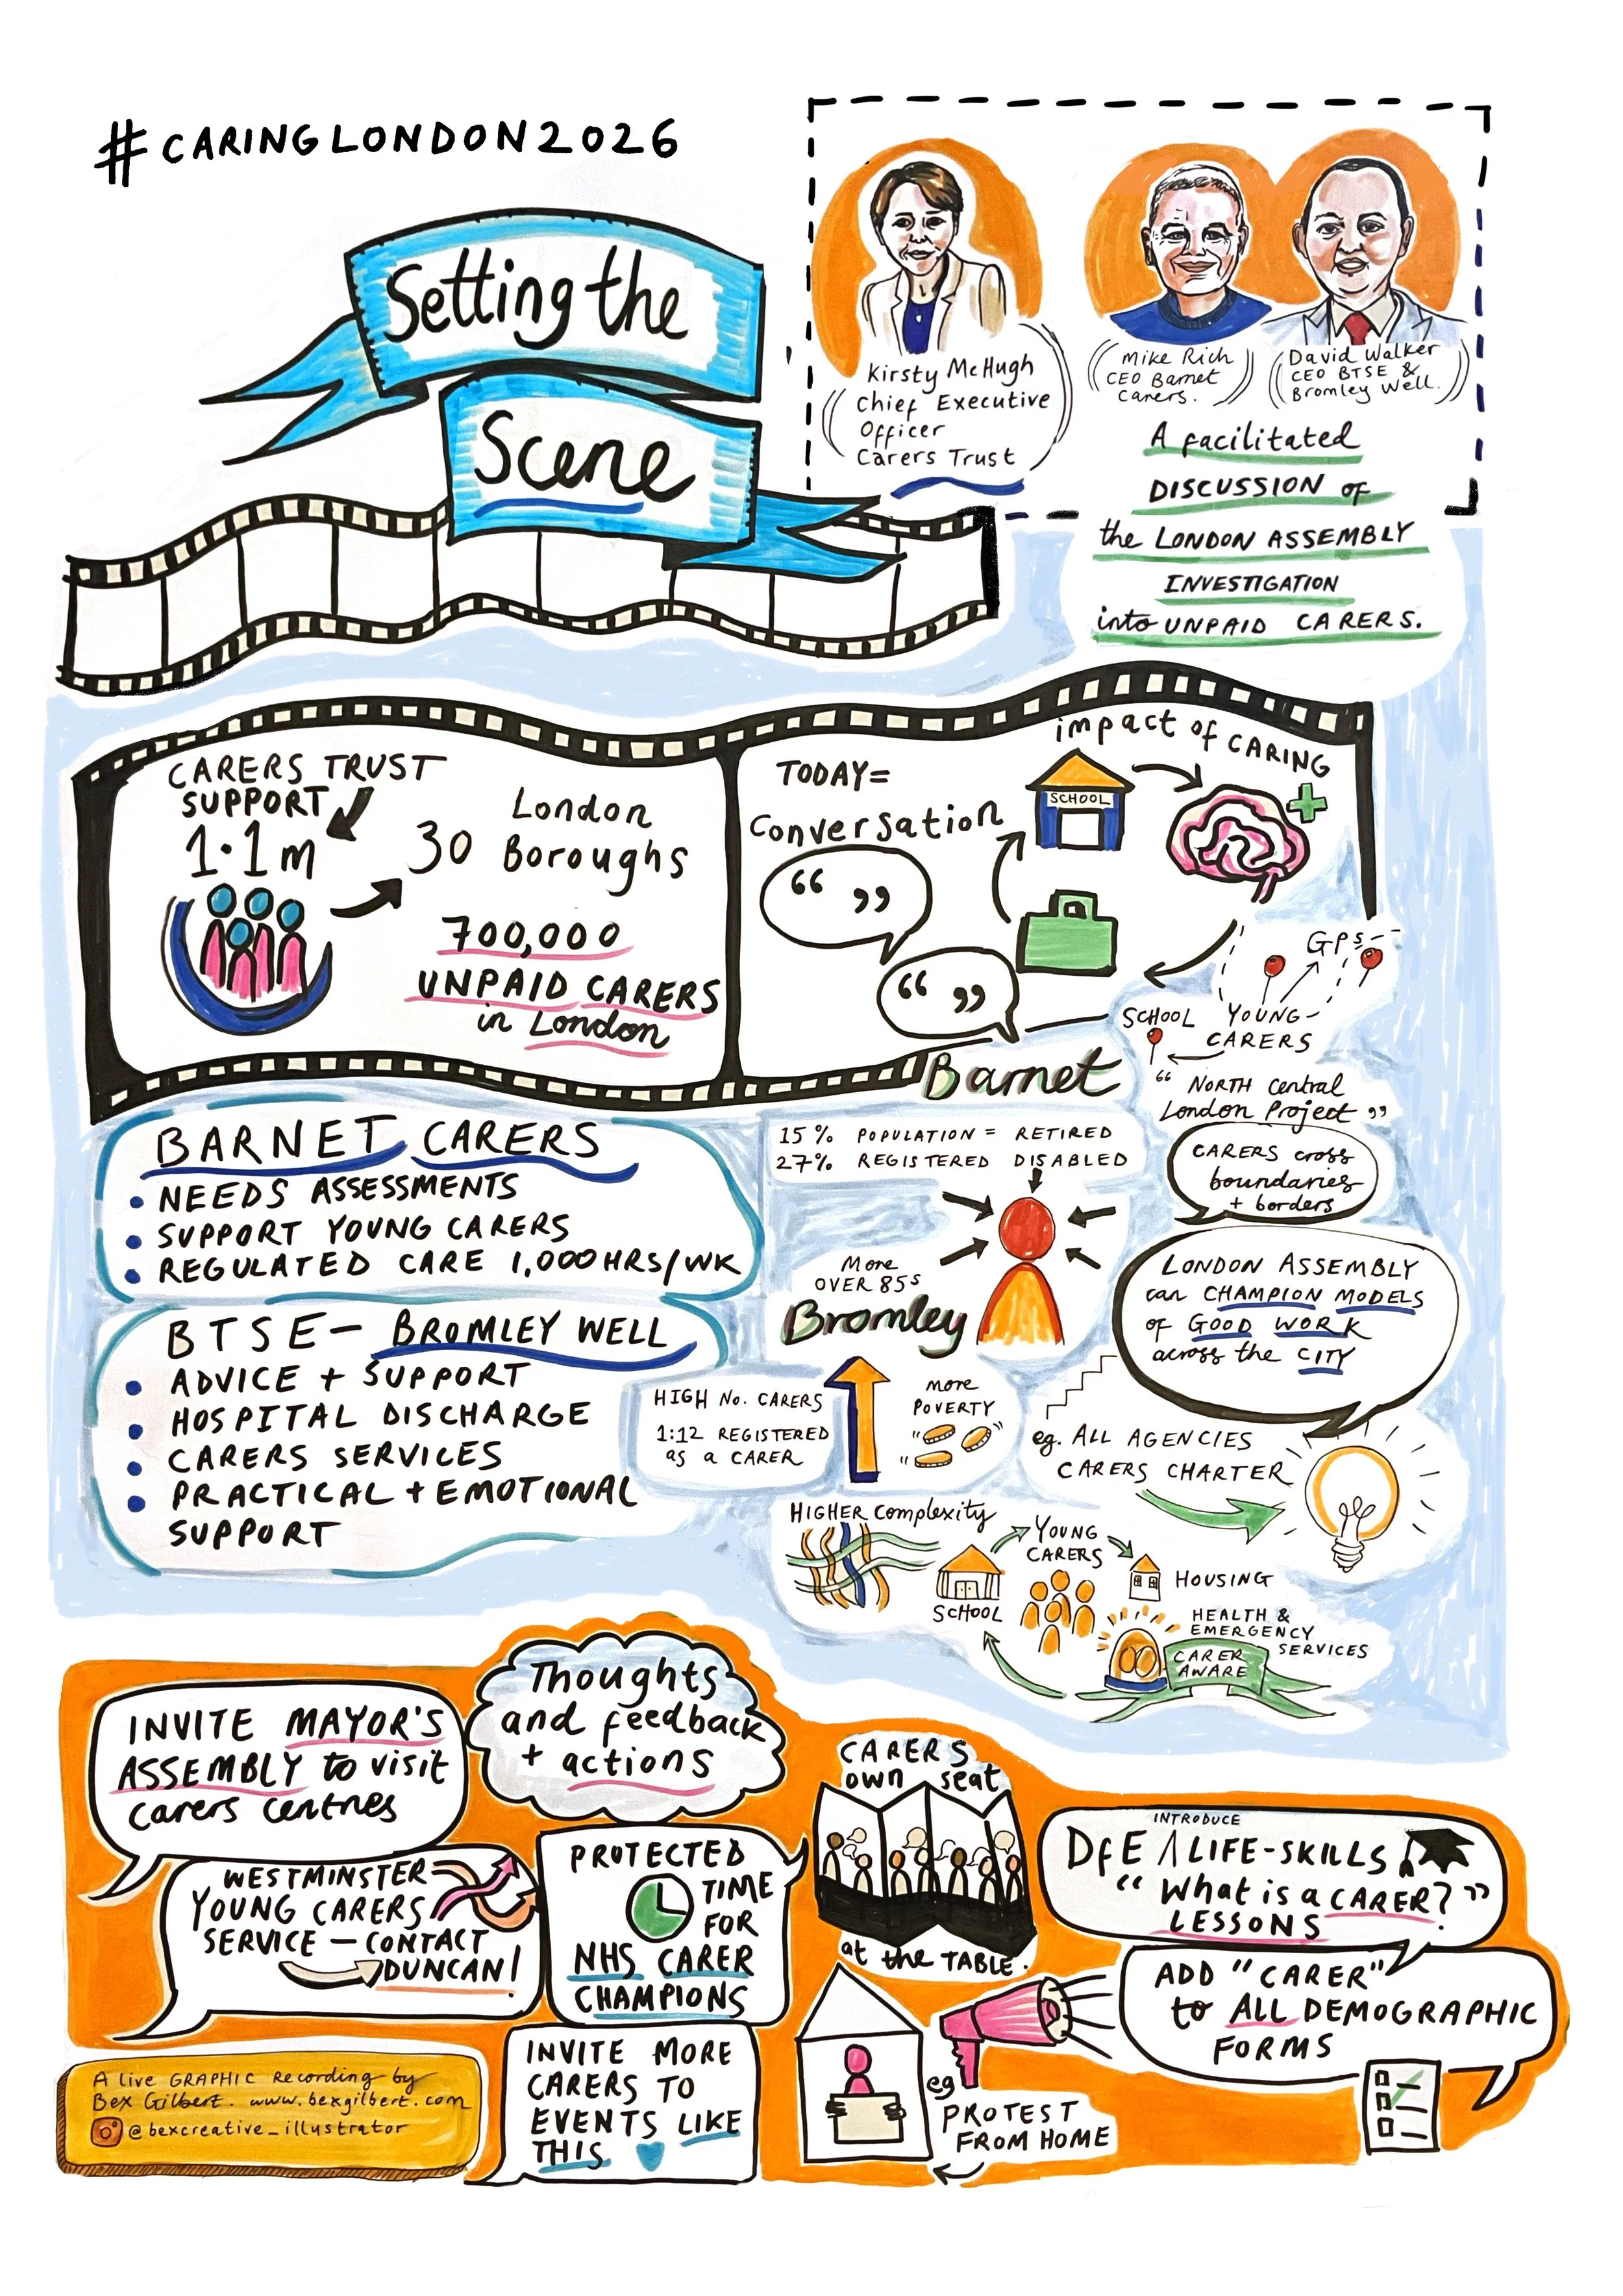 #CARINGLONDON2026
Setting the
Scene
Kirsty McHugh
Chief Executive
Officer
Carers Trust
Mike Rich
CEO Barnet
Carers.
David Walker
CEO BTSE &
Bromley Well.
A facilitated
DISCUSSION of
the LONDON ASSEMBLY
INVESTIGATION
into UNPAID CARERS.
CARERS TRUST
SUPPORT
1.1m
30 London
Boroughs
700,000
UNPAID CARERS
in London
TODAY=
Conversation
“ ”
“ ”
impact of CARING
SCHOOL
GPs
SCHOOL
YOUNG-
CARERS
“ NORTH Central
London Project ”
Barnet
BARNET CARERS
• NEEDS ASSESSMENTS
• SUPPORT YOUNG CARERS
• REGULATED CARE 1,000HRS/WK
BTSE – BROMLEY WELL
• ADVICE + SUPPORT
• HOSPITAL DISCHARGE
• CARERS SERVICES
• PRACTICAL + EMOTIONAL
SUPPORT
15% POPULATION = RETIRED
27% REGISTERED DISABLED
CARERS cross
boundaries
+ borders
More
OVER 85s
Bromley
LONDON ASSEMBLY
can CHAMPION MODELS
of GOOD WORK
across the CITY
HIGH No. CARERS
1:12 REGISTERED
as a CARER
more
POVERTY
eg. ALL AGENCIES
CARERS CHARTER
HIGHER Complexity
SCHOOL
YOUNG
CARERS
HOUSING
HEALTH &
EMERGENCY
SERVICES
CARER
AWARE
Thoughts
and feedback
+ actions
INVITE MAYOR'S
ASSEMBLY to visit
carers centres
WESTMINSTER
YOUNG CARERS
SERVICE – CONTACT
DUNCAN!
PROTECTED
TIME
FOR
NHS CARER
CHAMPIONS
INVITE MORE
CARERS TO
EVENTS LIKE
THIS
CARERS
own seat
at the TABLE.
INTRODUCE
DfE /\ LIFE-SKILLS
“What is a CARER?”
LESSONS
ADD “CARER”
to ALL DEMOGRAPHIC
FORMS
eg
PROTEST
FROM HOME
A live GRAPHIC Recording by
Bex Gilbert. www.bexgilbert.com
@bexcreative_illustrator